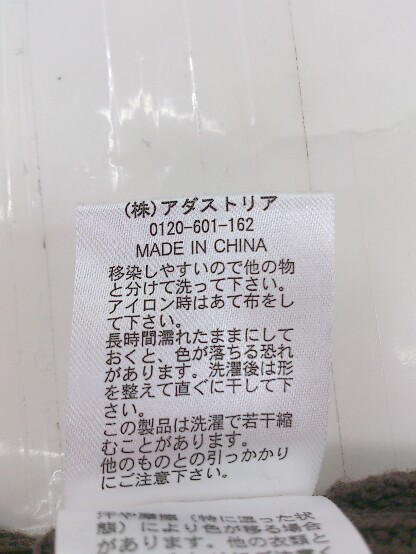 (株)アダストリア
0120-601-162
MADE IN CHINA
移染しやすいので他の物
と分けて洗って下さい。
アイロン時はあて布をし
て下さい。
長時間濡れたままにして
おくと、色が落ちる恐れ
があります。洗濯後は形
を整えて直ぐに干して下
さい。
この製品は洗濯で若干縮
むことがあります。
他のものとの引っかかり
にご注意下さい。
汗や摩擦（特に湿った状
態）により色が移る場合
があります。他の衣類と